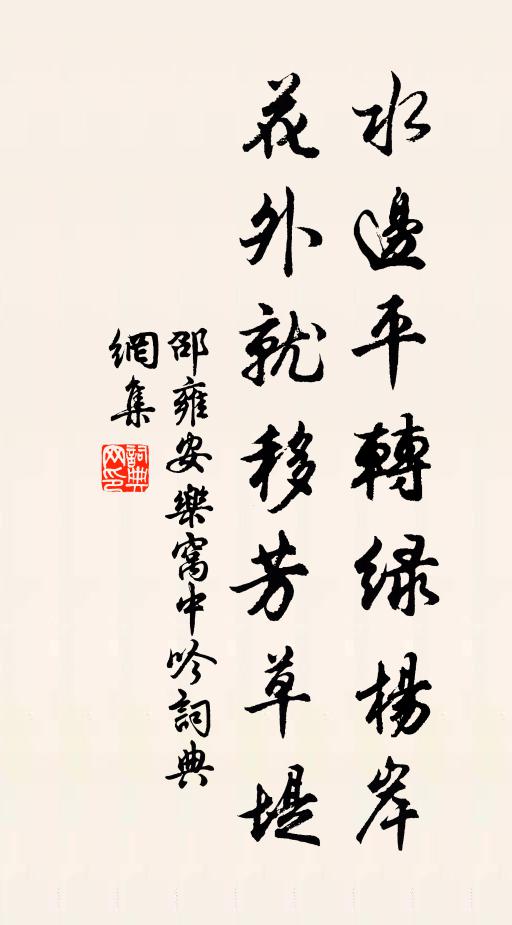 水邊平轉綠楊岸
花外就移芳草堤
邵雍安樂窩中吟詞典
網集
詞典網印